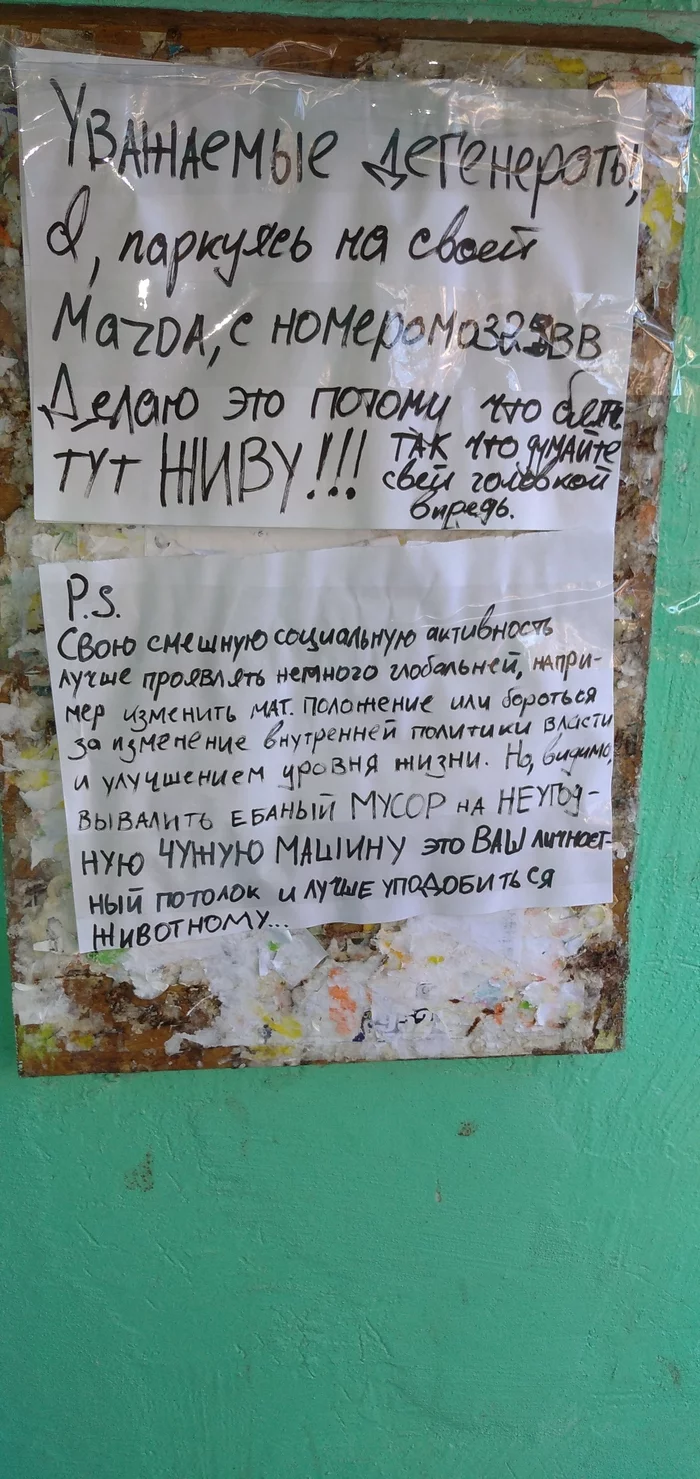 Уважаемые дегенераты,
Я, паркуясь на своей
Mazda, с номером о325ВВ
Делаю это потому что блять
тут ЖИВУ!!! ТАК что думайте
свей головкой
впредь.
P.S.
Свою смешную социальную активность
лучше проявлять немного глобальней, напри-
мер изменить мат. положение или бороться
за изменение внутренней политики власти
и улучшением уровня жизни. Но, видимо,
ВЫВАЛИТЬ ЕБАНЫЙ МУСОР НА НЕУГОД-
НУЮ ЧУЖУЮ МАШИНУ это ВАШ личност-
ный потолок и лучше уподобиться
животному...